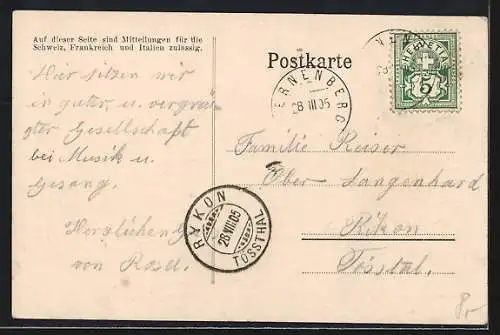 Auf dieser Seite sind Mitteilungen für die
Schweiz, Frankreich und Italien zulässig.
Postkarte
HELVETIA
5
ERNENBERG
28 III 05
Hier sitzen wir
in guter u. vergnüg-
ter Gesellschaft
bei Musik u.
Gesang.
Herzlichen G
von Rosel.
Familie Reiser
Ober Langenhard
Rikon
Tösstal.
RYKON
28 VIII 05
TÖSSTHAL
8,-